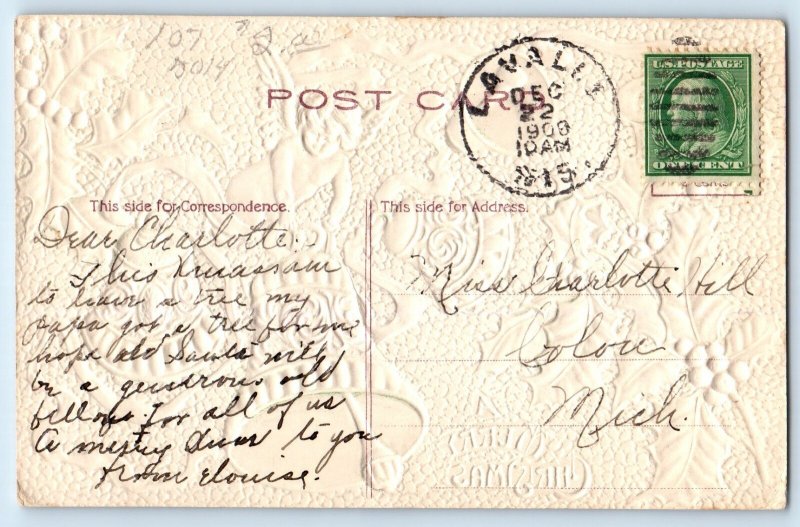 107
2014
POST CARD
LAVALLE
DEC
22
1908
10 AM
WIS.
U.S. POSTAGE
ONE CENT
This side for Correspondence.
This side for Address.
Dear Charlotte.
This Xmas am
to have a tree my
papa got a tree for me
hope old Santa will
be a generous old
fellow for all of us
A merry Xmas to you
from Elouise.
Miss Charlotte Hill
Colon
Mich.
CHRISTMAS